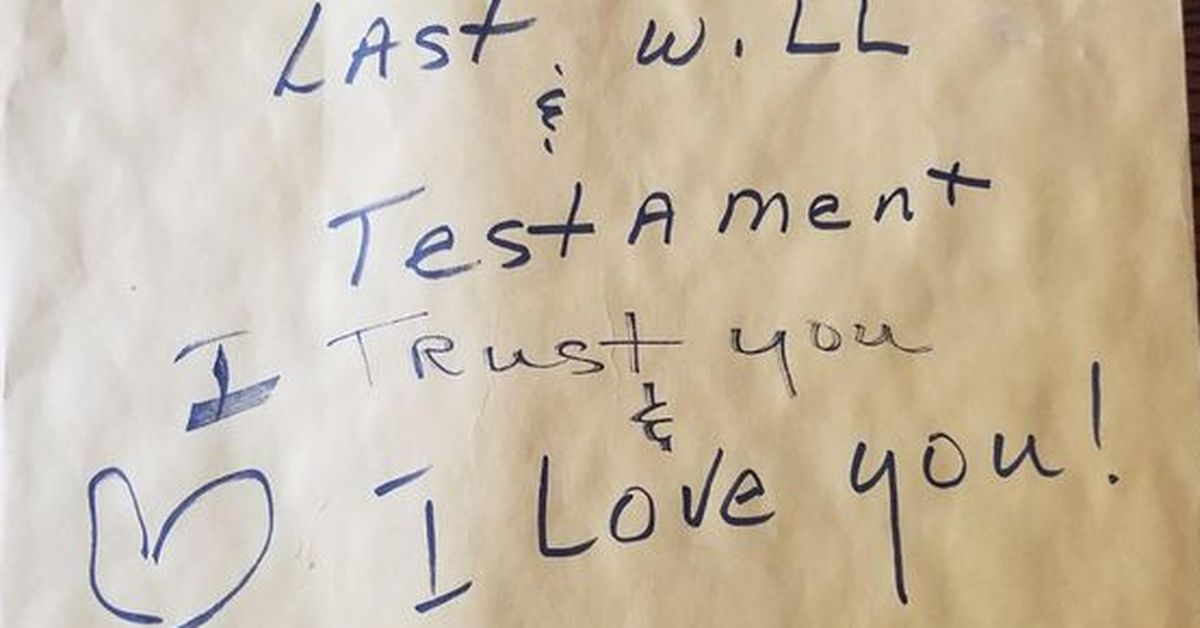 LAst WiLL
&
TestAment
I TRust you
&
I Love you!